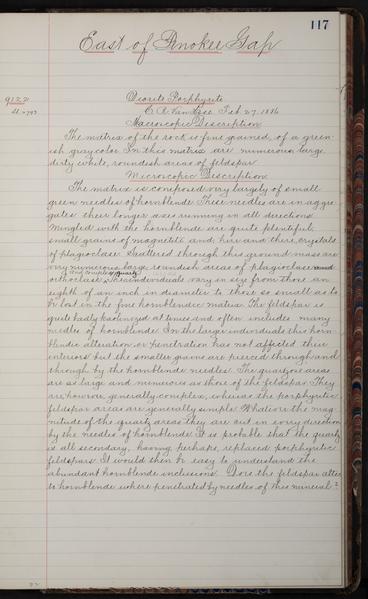 117
East of Penokee Gap
9122
Diorite Porphyrite
C. R. Van Hise Feb 27, 1886
Macroscopic Description
The matrix of the rock is fine grained, of a green-
ish gray color. In this matrix are numerous large
dirty white, roundish areas of feldspar.
Microscopic Description
The matrix is composed very largely of small
green needles of hornblende. These needles are in aggre-
gates their longer axes running in all directions.
Mingled with the hornblende are quite plentiful
small grains of magnetite and, here and there, crystals
of plagioclase. Scattered through this ground mass are
very numerous large roundish areas of plagioclase and
orthoclase and complex quartz. The individuals vary in size from those an
eighth of an inch in diameter to those so small as to
be lost in the fine hornblendic matrix. The feldspar is
quite badly kaolinized at times and often includes many
needles of hornblende. In the larger individuals this horn-
blendic alteration or penetration has not affected their
interiors but the smaller grains are pierced through and
through by the hornblende needles. The quartzose areas
are as large and numerous as those of the feldspar. They
are, however, generally complex, whereas the porphyritic
feldspar areas are generally simple. Whatever the mag-
nitude of the quartz areas they are cut in every direction
by the needles of hornblende. It is probable that the quartz
is all secondary, having, perhaps, replaced porphyritic
feldspars. It would then be easy to understand the
abundant hornblende inclusions. Does the feldspar alter
to hornblende where penetrated by needles of this mineral?